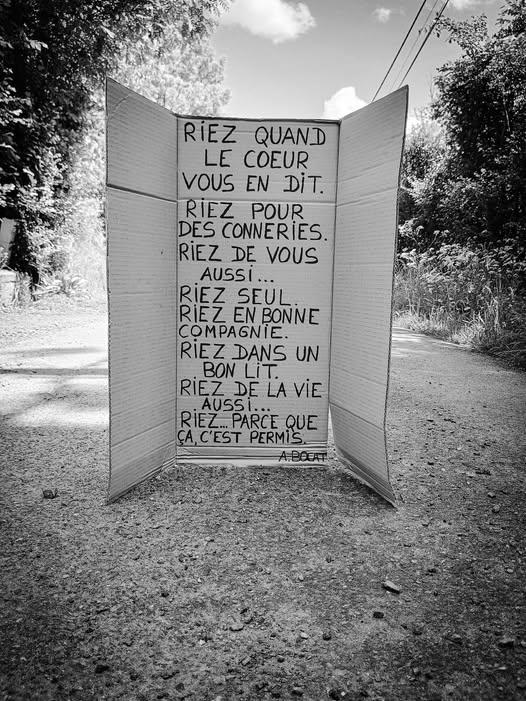 RiEZ QUAND
LE COEUR
VOUS EN DiT.
RiEZ POUR
DES CONNERiES.
RiEZ DE VOUS
AUSSi...
RiEZ SEUL.
RiEZ EN BONNE
COMPAGNiE.
RiEZ DANS UN
BON LiT.
RiEZ DE LA ViE
AUSSi...
RiEZ... PARCE QUE
ÇA, C'EST PERMiS.
A. BOLAT